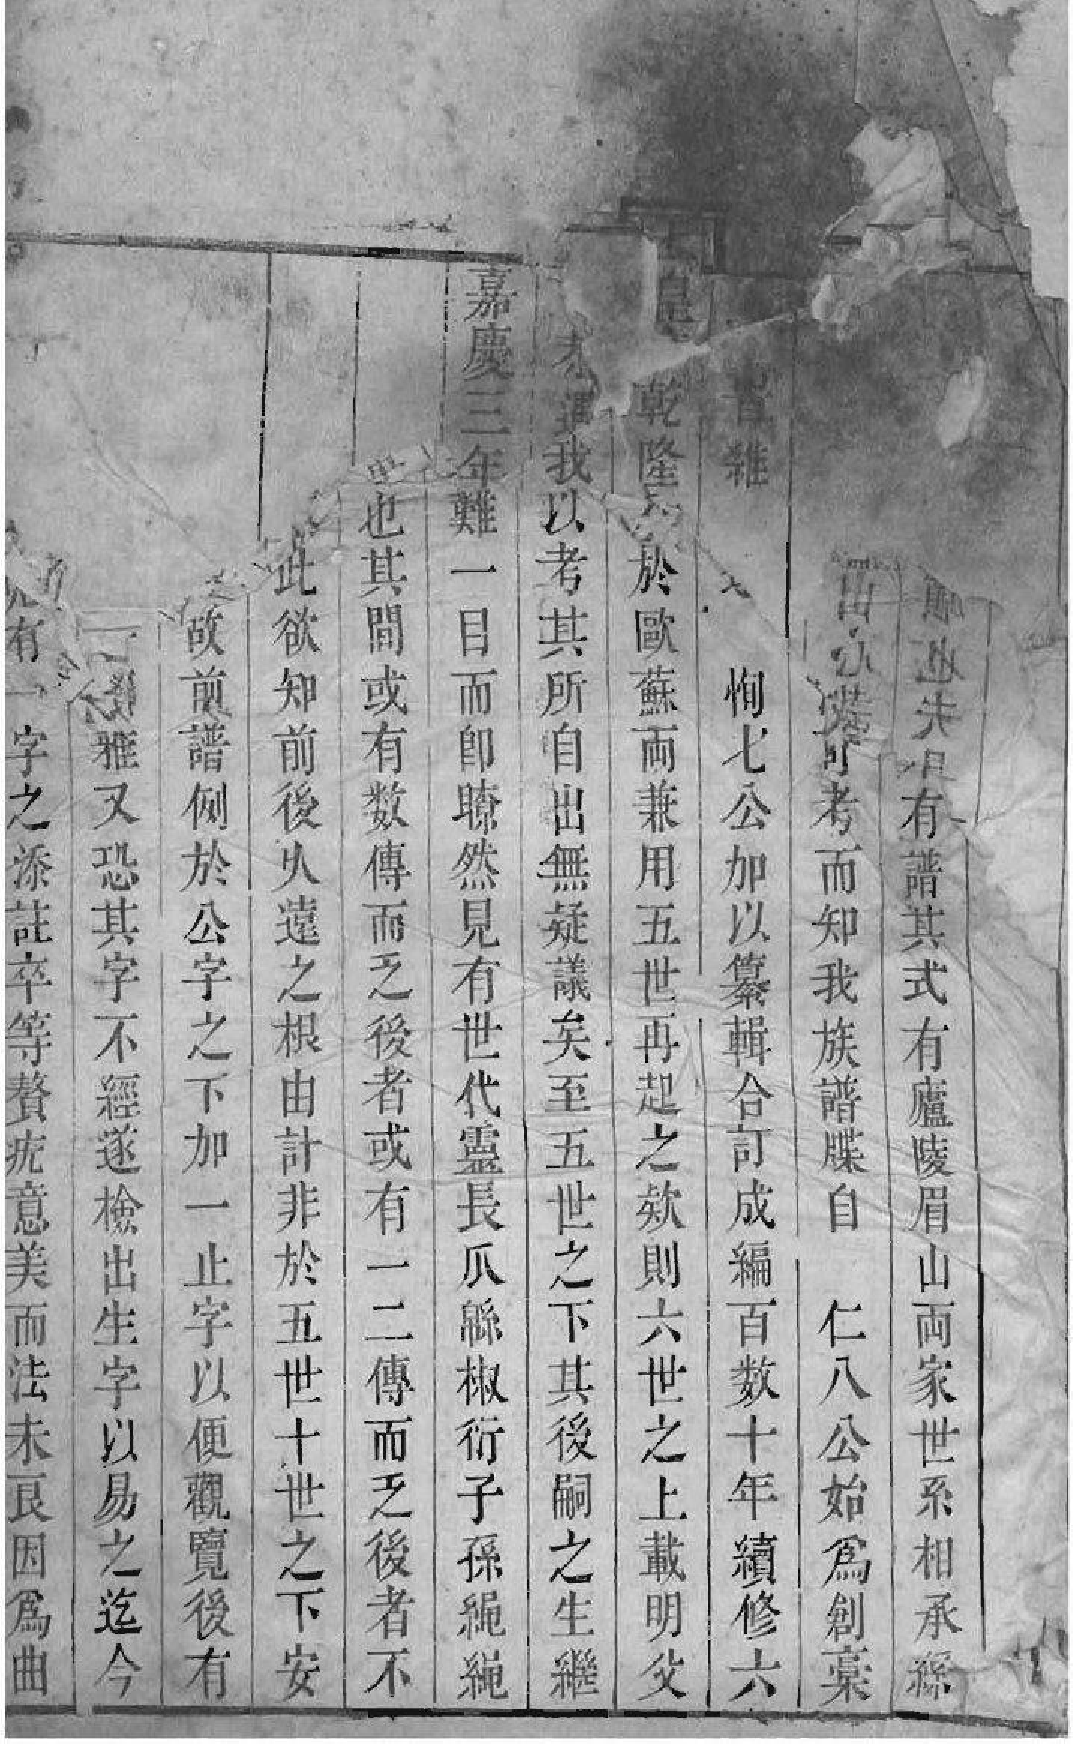 也夫 有譜其式有廬陵眉山兩家世系相承繇
可考而知我族譜牒自 仁八公始爲創藁
雜 恂七公加以纂輯合訂成編百數十年續修六
乾隆 於歐蘇兩兼用五世再起之欸則六世之上載明父
我以考其所自出無疑議矣至五世之下其後嗣之生繼
嘉慶三年難一目而即瞭然見有世代靈長瓜緜椒衍子孫繩繩
也其間或有数傳而乏後者或有一二傳而乏後者不
此欲知前後久遠之根由計非於五世十世之下安
故前譜例於公字之下加一止字以便觀覽後有
雅又恐其字不經遂檢出生字以易之迄今
有一字之添註卒等贅疣意美而法未良因爲曲